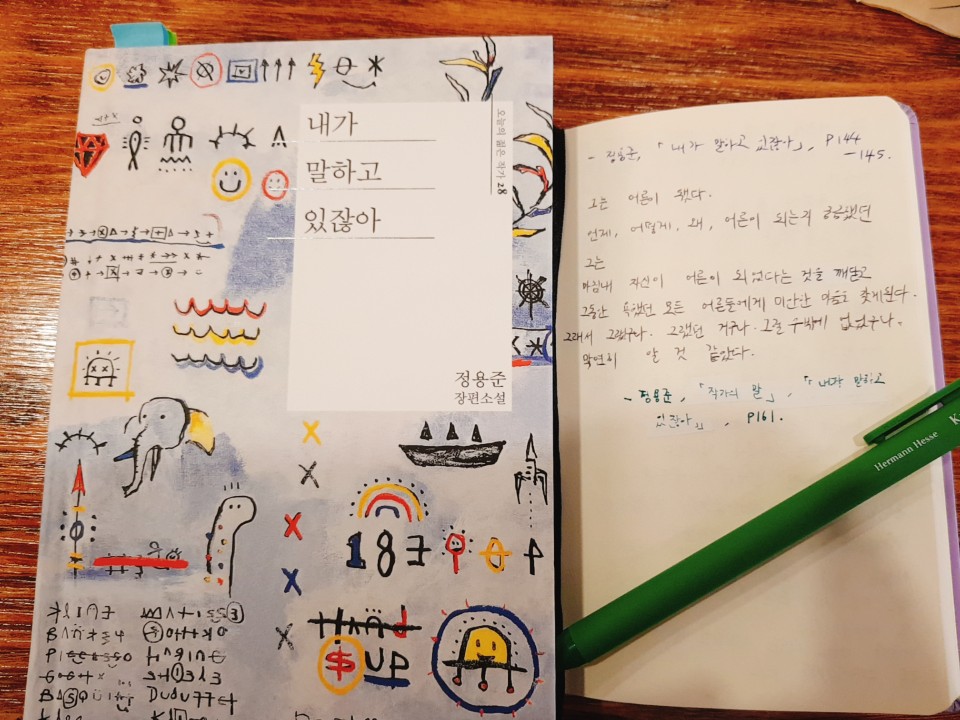 내가
말하고
있잖아
오늘의 젊은 작가 28
정용준
장편소설
187
UP
- 정용준, 「내가 말하고 있잖아」, P144
-145.
그는 어른이 됐다.
언제, 어떻게, 왜, 어른이 되는지 궁금했던
그는
마침내 자신이 어른이 되었다는 것을 깨닫고
그동안 욕했던 모든 어른들에게 미안한 마음을 갖게된다.
그래서 그랬구나. 그랬던 거구나. 그럴 수밖에 없었구나.
막연히 알 것 같았다.
- 정용준, 「작가의 말」, 「내가 말하고
있잖아」, P161.
Hermann Hesse